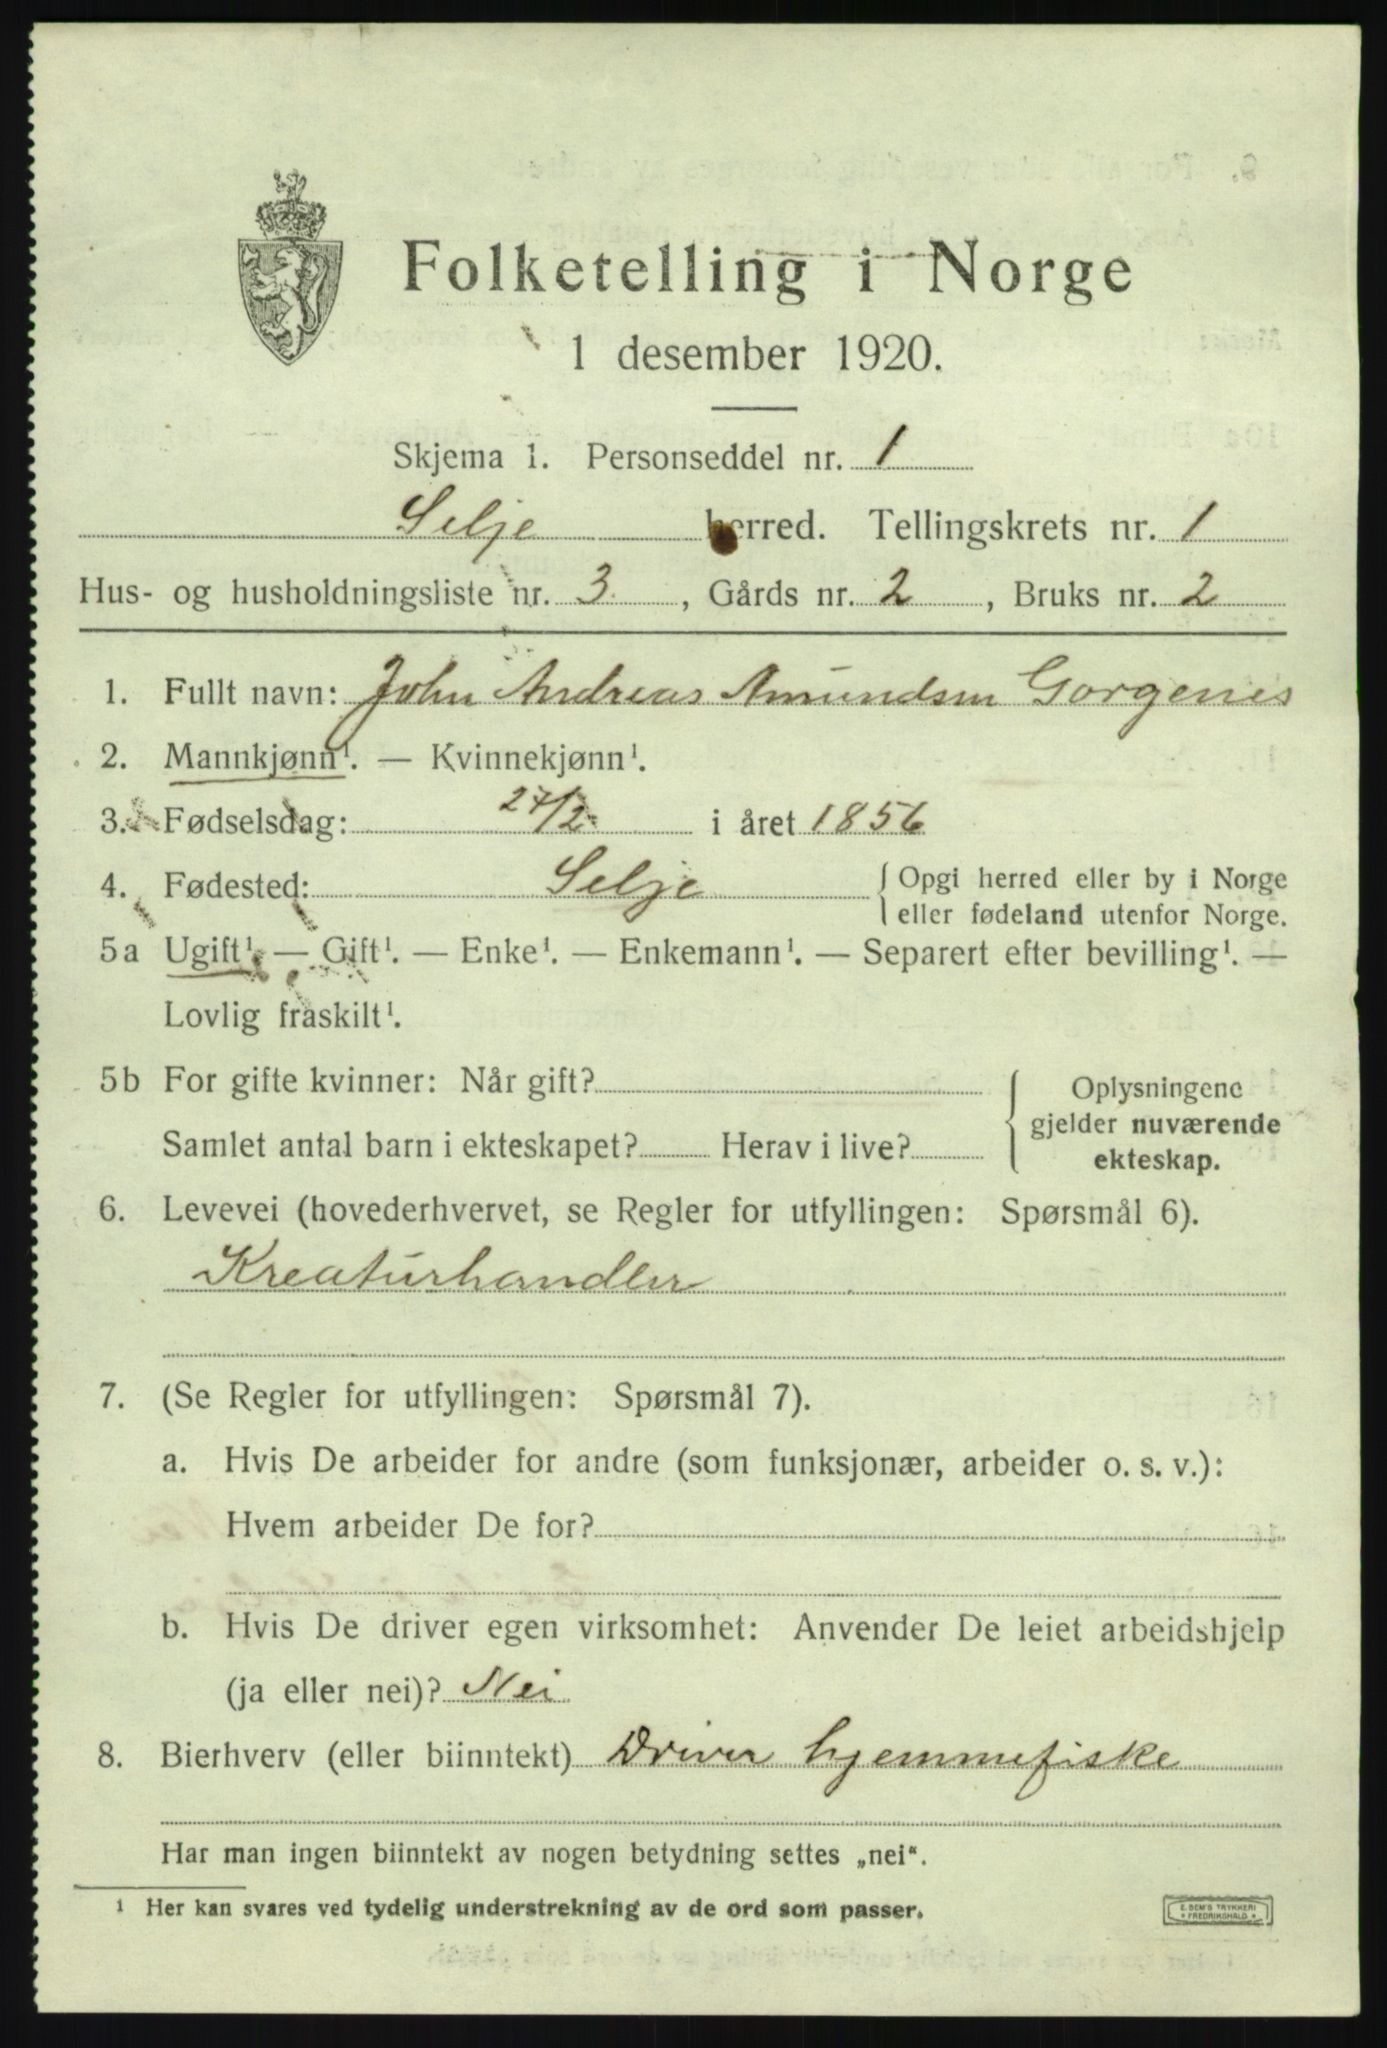 Folketelling i Norge
1 desember 1920.
Skjema 1. Personseddel nr. 1
Selje herred. Tellingskrets nr. 1
Hus- og husholdningsliste nr. 3, Gårds nr. 2, Bruks nr. 2
1. Fullt navn: John Andreas Amundsen Gorgenes
2. Mannkjønn¹. — Kvinnekjønn¹.
3. Fødselsdag: 27/2 i året 1856
4. Fødested: Selje { Opgi herred eller by i Norge
eller fødeland utenfor Norge.
5a Ugift¹. — Gift¹. — Enke¹. — Enkemann¹. — Separert efter bevilling¹. —
Lovlig fraskilt¹.
5b For gifte kvinner: Når gift? { Oplysningene
gjelder nuværende
Samlet antal barn i ekteskapet? Herav i live?
ekteskap.
6. Levevei (hovederhvervet, se Regler for utfyllingen: Spørsmål 6).
Kreaturhandler
7. (Se Regler for utfyllingen: Spørsmål 7).
a. Hvis De arbeider for andre (som funksjonær, arbeider o. s. v.):
Hvem arbeider De for?
b. Hvis De driver egen virksomhet: Anvender De leiet arbeidshjelp
(ja eller nei)? Nei
8. Bierhverv (eller biinntekt) Driver hjemmefiske
Har man ingen biinntekt av nogen betydning settes „nei“.
¹ Her kan svares ved tydelig understrekning av de ord som passer.
E. SEM'S TRYKKERI
• FREDRIKSHALD •